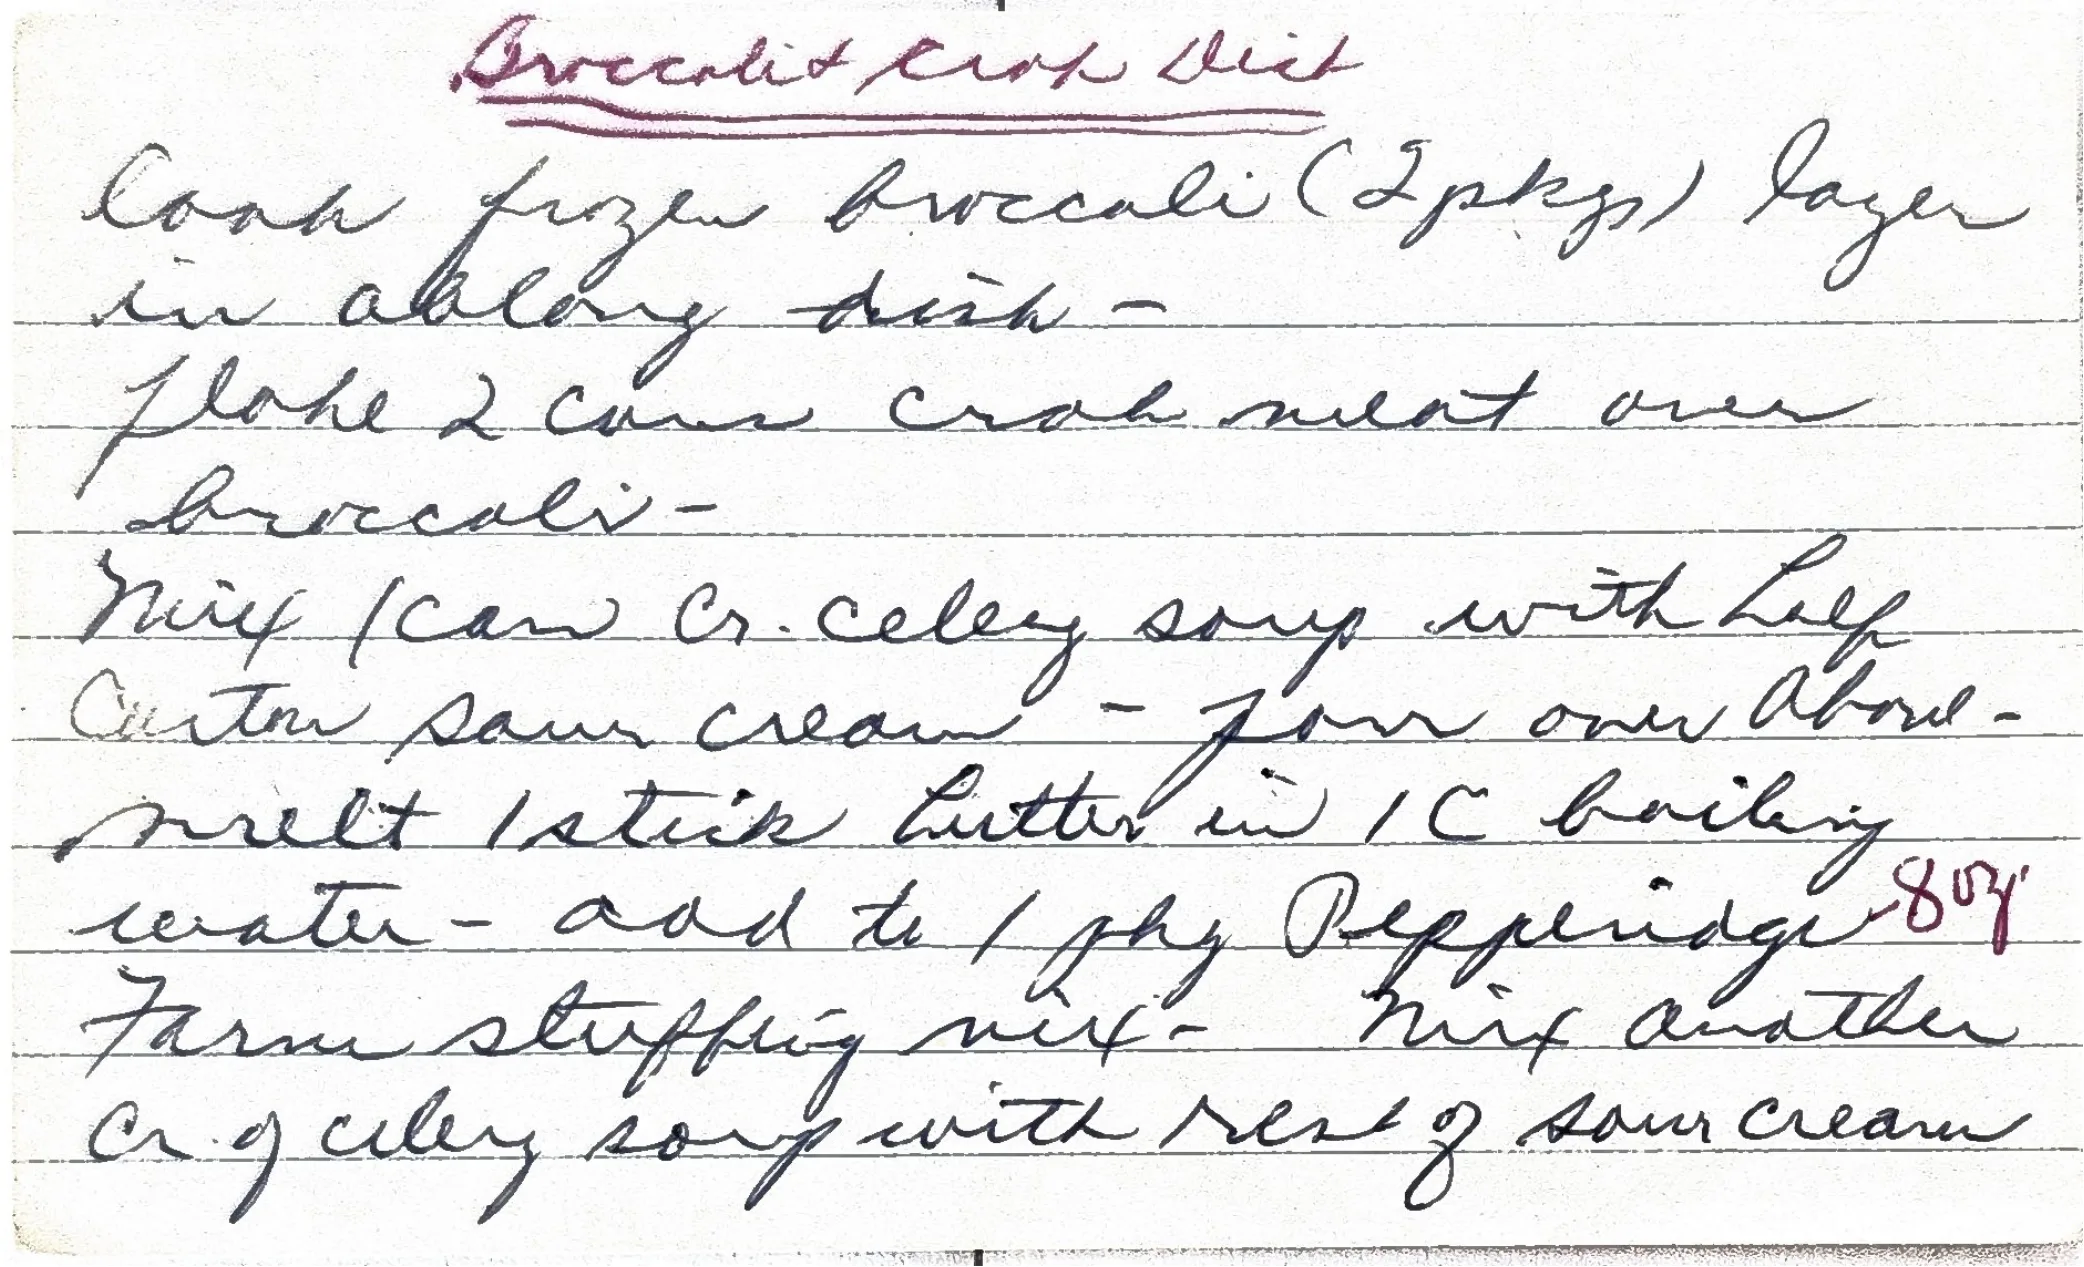 Broccoli & Crab Dish
Cook frozen broccoli (2 pkgs) layer
in oblong dish -
flake 2 cans crab meat over
broccoli -
Mix 1 can Cr. celery soup with half
Carton sour cream - pour over above -
melt 1 stick butter in 1 C boiling
water - add to 1 pkg Pepperidge - 8 oz.
Farm stuffing mix - Mix another
Cr. of celery soup with rest of sour cream